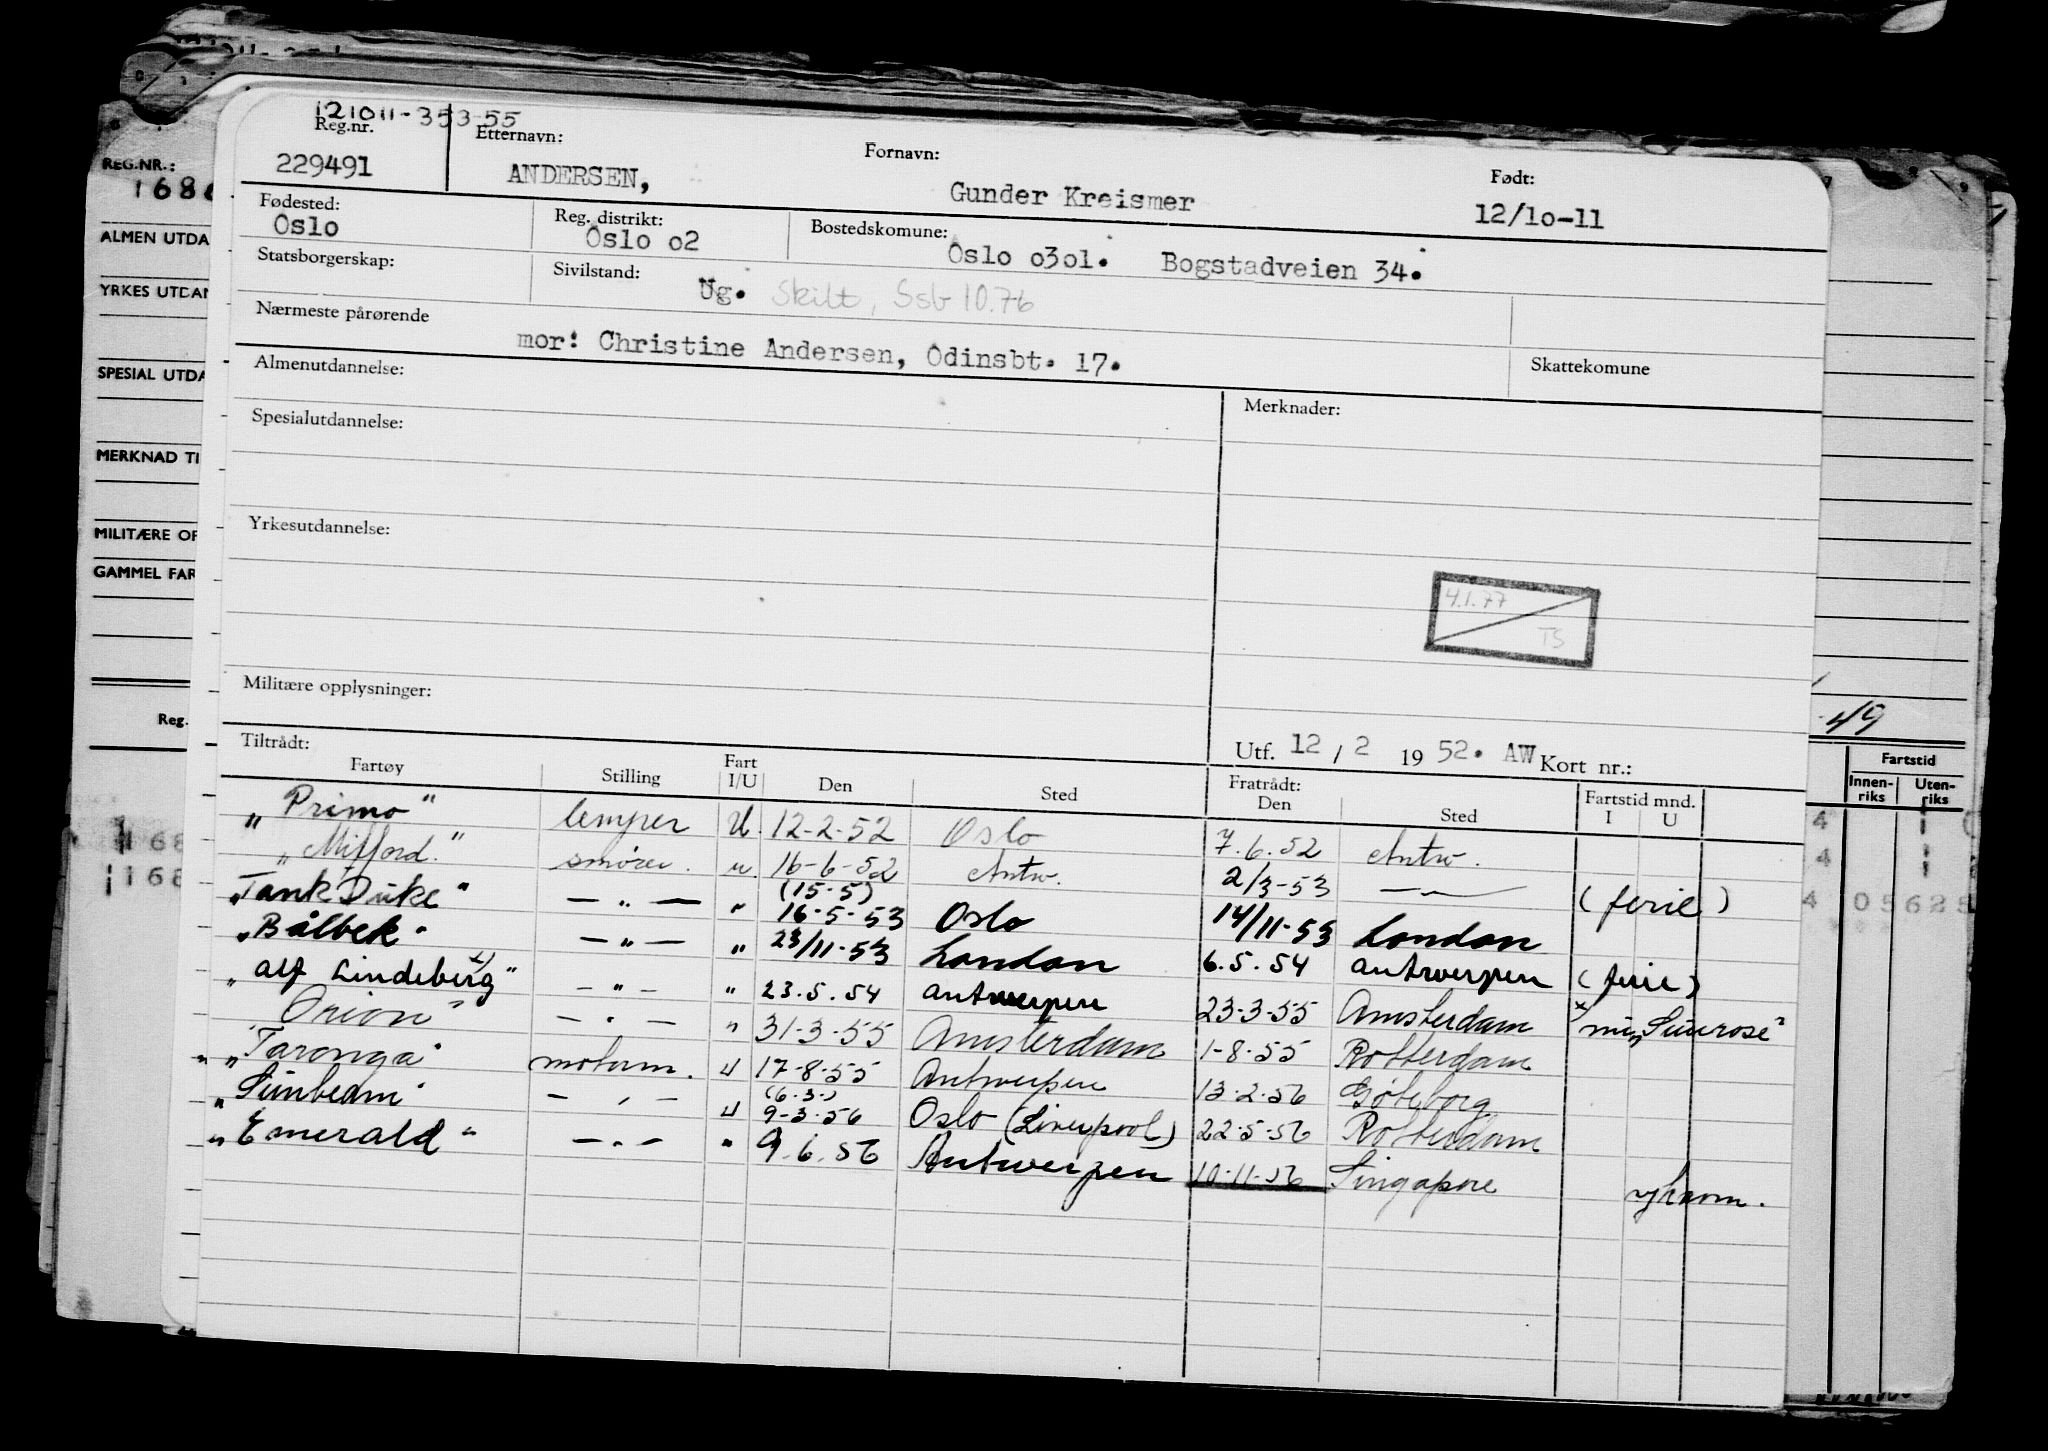 121011-353-55
Reg.nr. Etternavn: Fornavn: Født:
229491 ANDERSEN, Gunder Kreismer 12/1o-11
Fødested: Reg. distrikt: Bostedskomune:
Oslo Oslo o2 Oslo o3o1. Bogstadveien 34.
Statsborgerskap: Sivilstand: Ug. Skilt, Ssb 10.76
Nærmeste pårørende
mor: Christine Andersen, Odinsbt. 17.
Skattekomune
Almenutdannelse: Merknader:
Spesialutdannelse:
Yrkesutdannelse:
4.1.77
TS
Militære opplysninger:
Utf. 12 / 2 1952. AW Kort nr.:
Tiltrådt: Fratrådt:
Fartøy Stilling Fart I/U Den Sted Den Sted Fartstid mnd. I U
"Primo" lemper U. 12-2-52 Oslo 7.6.52 Antw.
"Mifford." smører. u. 16-6-52 Antw. 2/3-53 — " — (ferie)
"Tank Duke" — " — " (15-5) 16-5-53 Oslo 14/11-53 London
"Bålbek" — " — " 23/11-53 London 6.5.54 Antwerpen (ferie)
"Alf Lindeberg x)" — " — " 23.5.54 Antwerpen 23-3-55 Amsterdam x
"Orion" — " — " 31-3-55 Amsterdam 1-8-55 Rotterdam
"Taronga" motorm. u 17-8-55 Antwerpen 13-2-56 Gøteborg
"Sunbeam" — " — u (6.3.) 9-3-56 Oslo (Liverpool) 22-5-56 Rotterdam
"Emerald" — " — " 9.6.56 Antwerpen 10-11-56 Singapore
REG.NR.:
168
ALMEN UTDA
YRKES UTDAN
SPESIAL UTDA
MERKNAD TI
MILITÆRE OP
GAMMEL FAR
Reg.
168
168
49
Fartstid
Innen-riks Uten-riks
4
4
4 05625